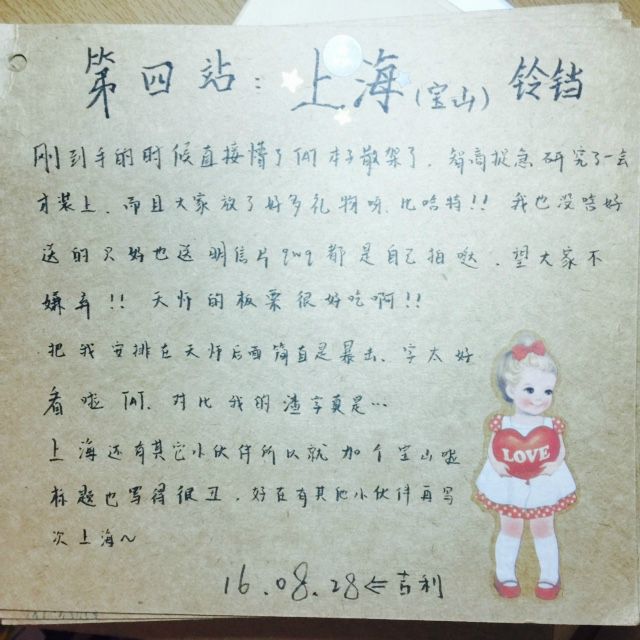 第四站：上海(宝山) 铃铛
刚到手的时候直接懵了啊本子散架了，智商捉急研究了一会
才装上，而且大家放了好多礼物呀，比哈特!! 我也没啥好
送的只好也送明信片 qwq 都是自己拍哒，望大家不
嫌弃!! 天忻的板栗很好吃啊!!
把我安排在天忻后面简直是暴击，字太好
看啦啊，对比我的渣字真是…
上海还有其它小伙伴所以就加个宝山啦
标题也写得很丑，好在有其他小伙伴再写
次上海~
LOVE
16.08.28⇐吉利